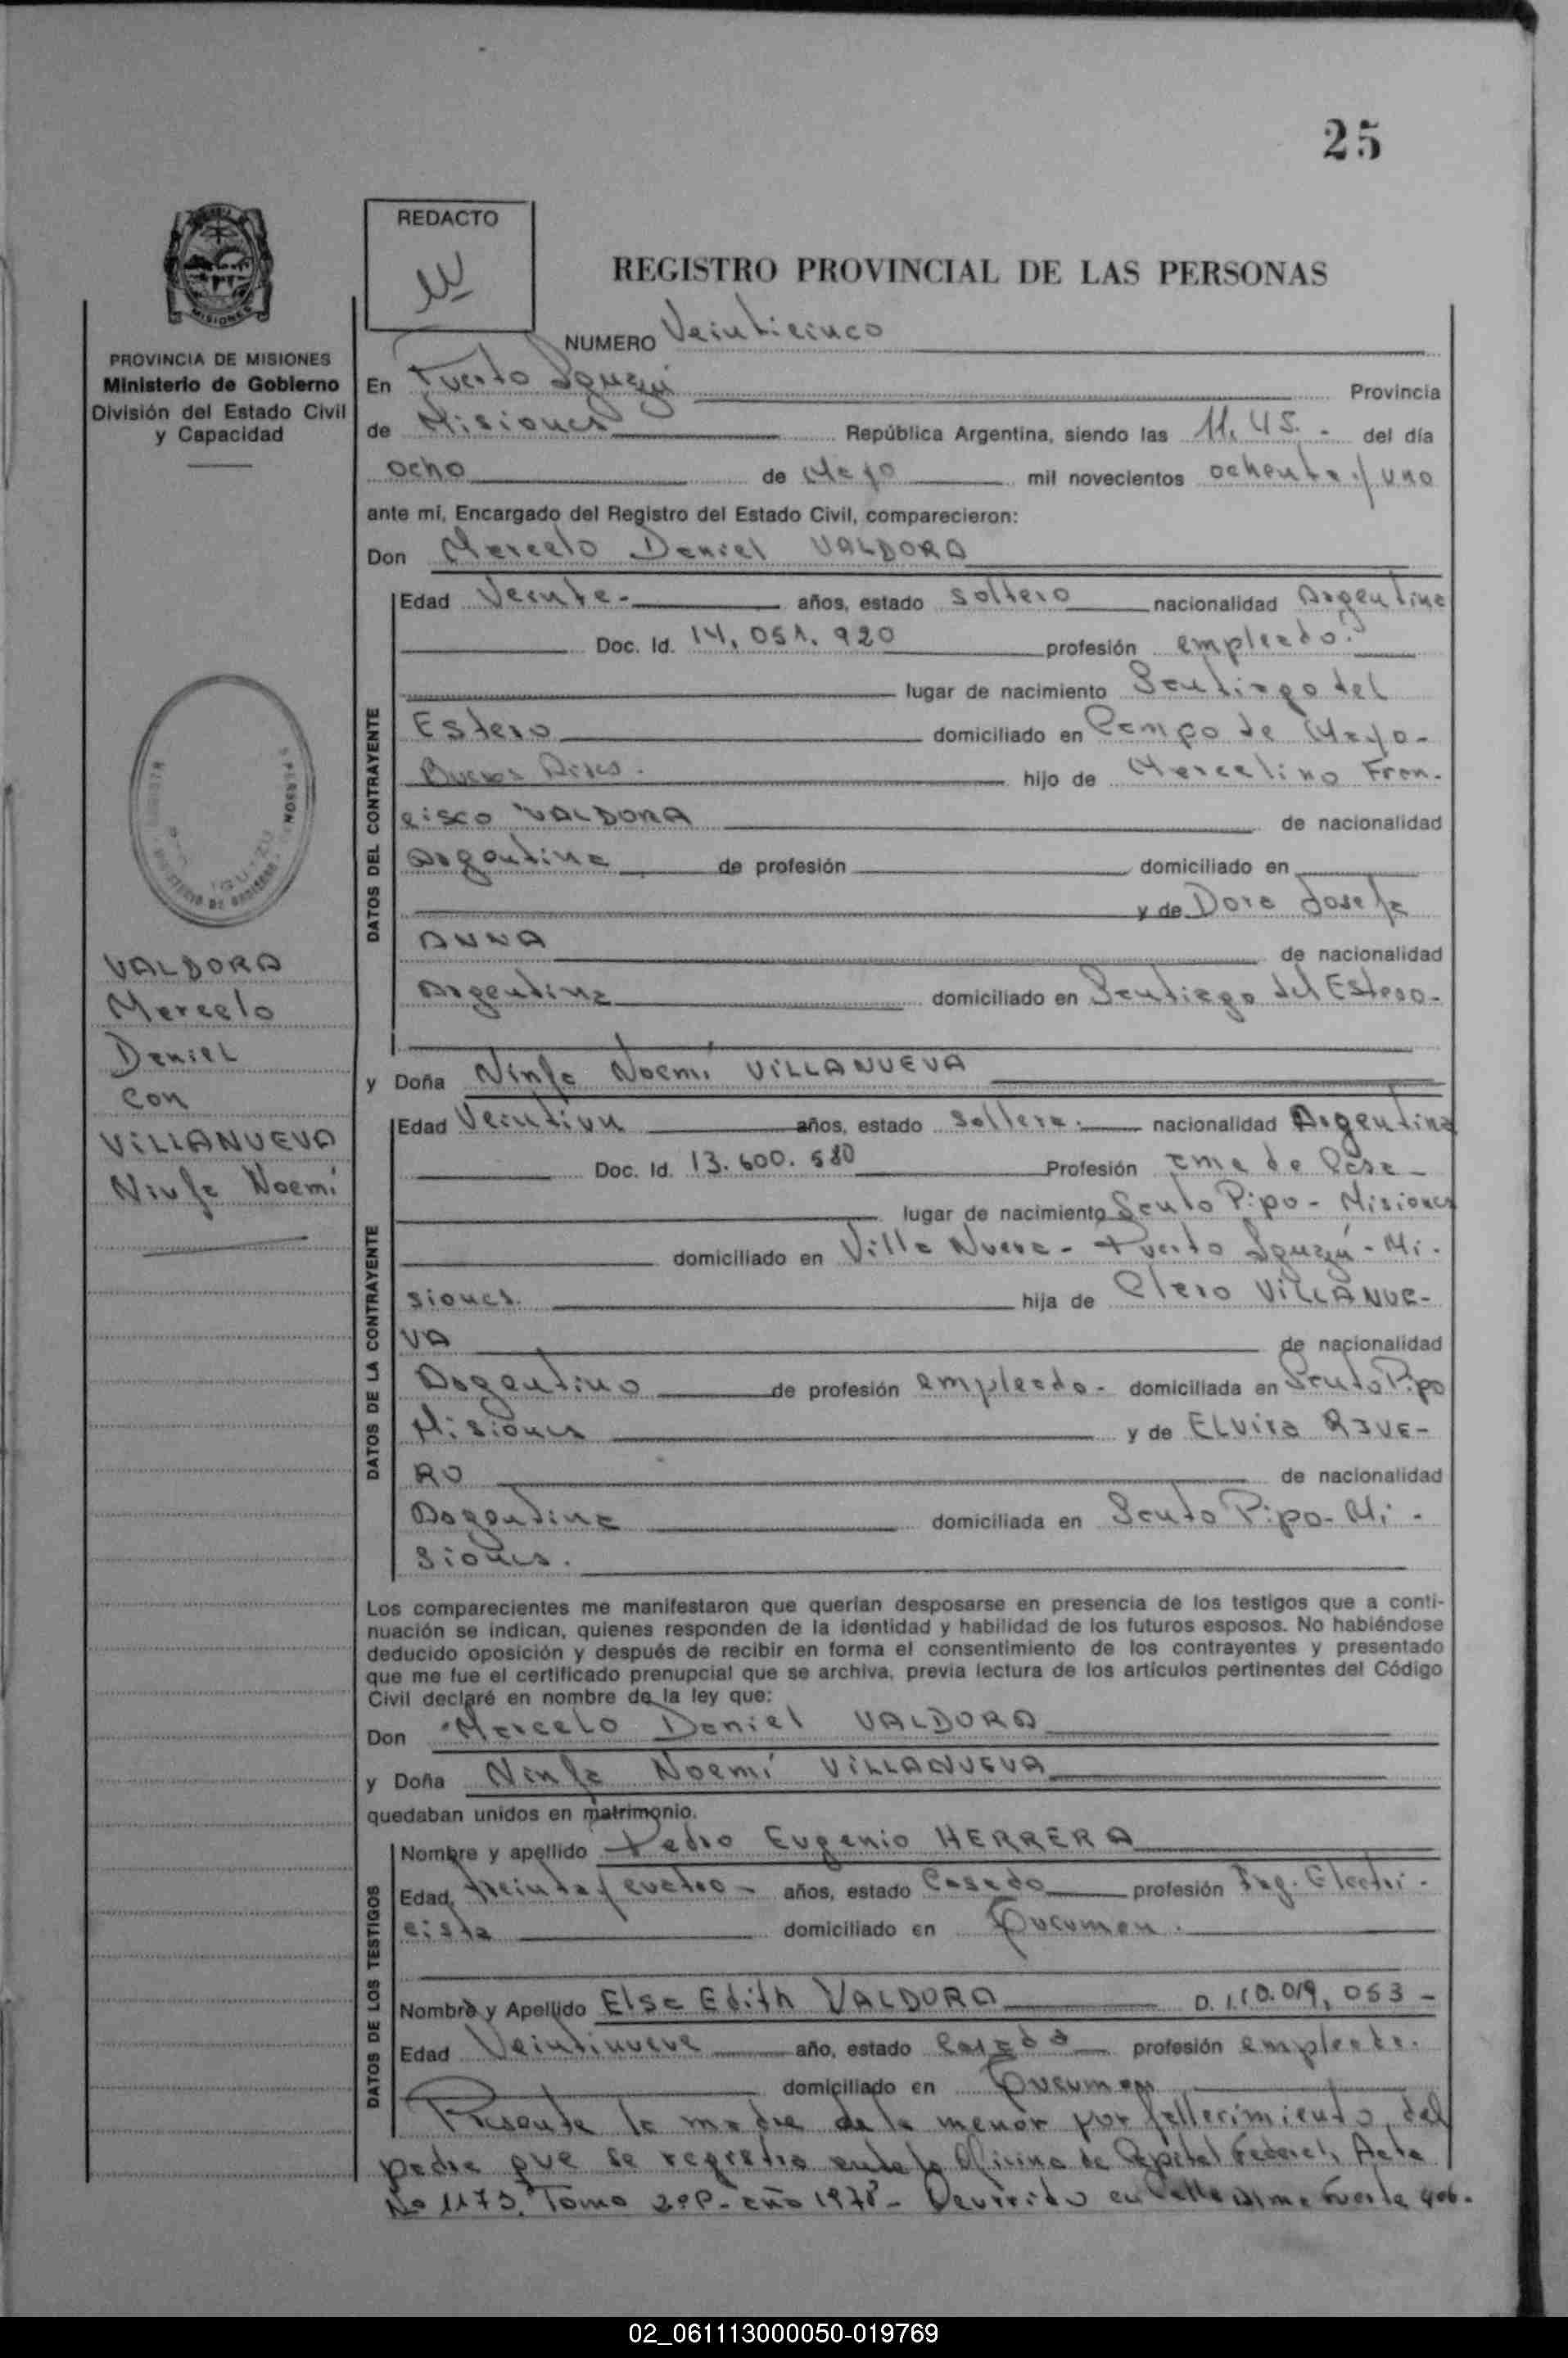 25
REDACTO
REGISTRO PROVINCIAL DE LAS PERSONAS
MISIONES
PROVINCIA DE MISIONES
Ministerio de Gobierno
División del Estado Civil
y Capacidad
NUMERO Veinticinco
En Puerto Iguazú Provincia
de Misiones República Argentina, siendo las 11,45.- del día
ocho de Mayo mil novecientos ochenta y uno
ante mí, Encargado del Registro del Estado Civil, comparecieron:
Don Marcelo Daniel VALDORA
DATOS DEL CONTRAYENTE
Edad Veinte- años, estado soltero nacionalidad Argentina
Doc. Id. 14.051.920 profesión empleado.
lugar de nacimiento Santiago del
Estero domiciliado en Campo de Mayo-
Buenos Aires. hijo de Marcelino Fran-
cisco VALDORA de nacionalidad
Argentina de profesión domiciliado en
y de Dora Josefa
ANNA de nacionalidad
Argentina domiciliado en Santiago del Estero-
VALDORA
Marcelo
Daniel
con
VILLANUEVA
Ninfa Noemí
y Doña Ninfa Noemí VILLANUEVA
DATOS DE LA CONTRAYENTE
Edad Veintiun años, estado soltera.- nacionalidad Argentina
Doc. Id. 13.600.580 Profesión ama de casa-
lugar de nacimiento Santo Pipo - Misiones
domiciliado en Villa Nueva - Puerto Iguazú - Mi-
siones. hija de Claro VILLANUE-
VA de nacionalidad
Argentino de profesión empleado- domiciliada en Santo Pipo
Misiones y de Elvira RIVE-
RO de nacionalidad
Argentina domiciliada en Santo Pipo- Mi-
siones.
Los comparecientes me manifestaron que querían desposarse en presencia de los testigos que a conti-
nuación se indican, quienes responden de la identidad y habilidad de los futuros esposos. No habiéndose
deducido oposición y después de recibir en forma el consentimiento de los contrayentes y presentado
que me fue el certificado prenupcial que se archiva, previa lectura de los artículos pertinentes del Código
Civil declaré en nombre de la ley que:
Don Marcelo Daniel VALDORA
y Doña Ninfa Noemí VILLANUEVA
quedaban unidos en matrimonio.
DATOS DE LOS TESTIGOS
Nombre y apellido Pedro Eugenio HERRERA
Edad treinta y cuatro- años, estado Casado profesión Ing. Electri-
cista domiciliado en Tucuman.
Nombre y Apellido Elsa Edith VALDORA D.I. 10.019.053 -
Edad Veintinueve año, estado Casada profesión empleada.
domiciliado en Tucuman
Presente la madre de la menor por fallecimiento del
padre que se registro ante la Oficina de Capital Federal, Acta
No 1173. Tomo 2ºP- año 1978- Ocurrido en Calle
02_061113000050-019769